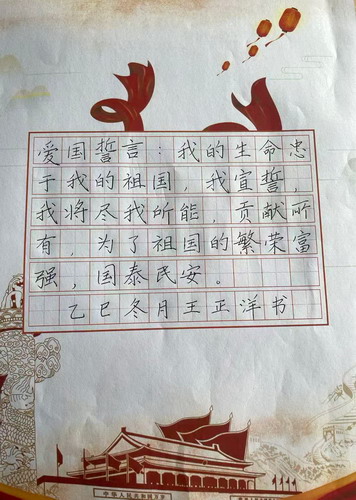 爱国誓言：我的生命忠
于我的祖国，我宣誓，
我将尽我所能，贡献所
有，为了祖国的繁荣富
强，国泰民安。
乙巳冬月王正洋书
中华人民共和国万岁